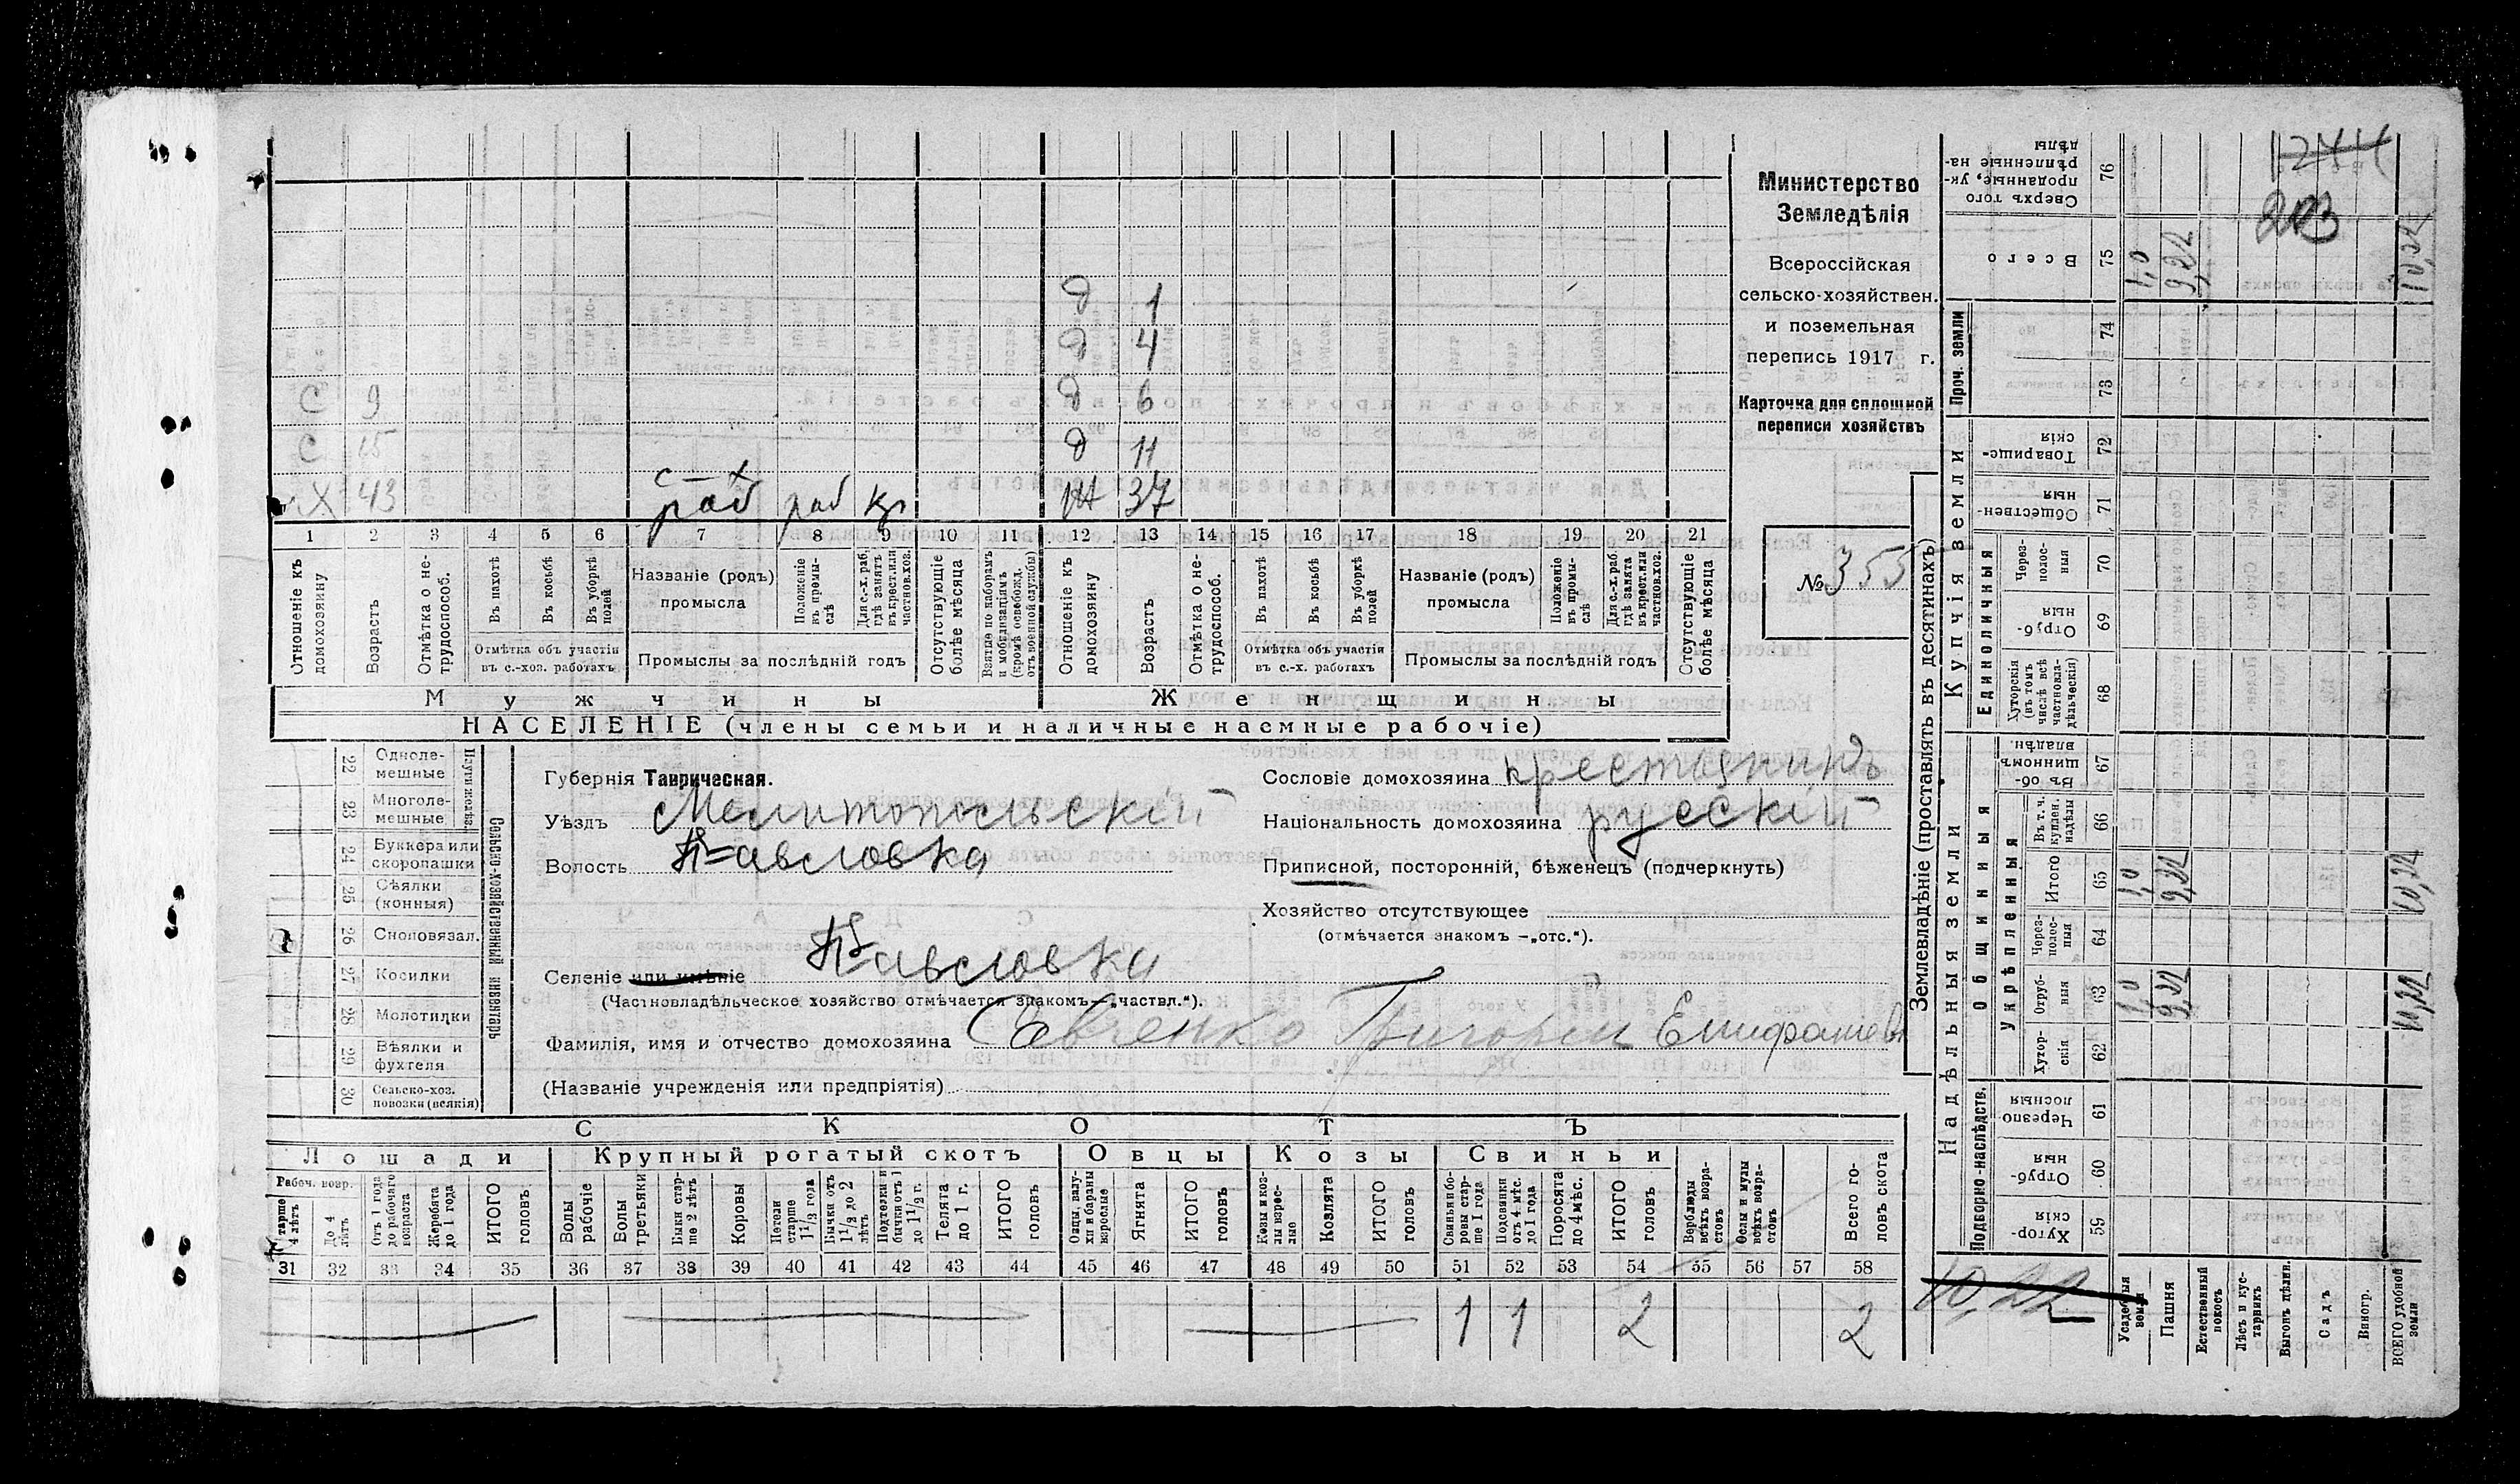 Министерство
Земледѣлія
Всероссійская
сельско-хозяйствен.
и поземельная
перепись 1917 г.
Карточка для сплошной
переписи хозяйствъ
№ 355
1244
203
д 1
д 4
С 9 д 6
С 15 д 11
с-х
Х 43 раб раб кр Ж 37
1 2 3 4 5 6 7 8 9 10 11 12 13 14 15 16 17 18 19 20 21
Отношеніе къ домохозяину
Возрастъ
Отмѣтка о не-трудоспособ.
Въ пахотѣ
Въ косьбѣ
Въ уборкѣ полей
Отмѣтка объ участіи въ с.-хоз. работахъ
Названіе (родъ) промысла
Положеніе въ промы-слѣ
Для с.-х. раб. гдѣ занятъ въ крест. или частнов. хоз.
Промыслы за послѣдній годъ
Отсутствующіе болѣе мѣсяца
Взятые по наборамъ и мобилизаціямъ (кромѣ освобожд. отъ военной службы)
Отношеніе къ домохозяину
Возрастъ
Отмѣтка о не-трудоспособ.
Въ пахотѣ
Въ косьбѣ
Въ уборкѣ полей
Отмѣтка объ участіи въ с.-х. работахъ
Названіе (родъ) промысла
Положеніе въ промы-слѣ
Для с.-х. раб. гдѣ занята въ крест. или частнов. хоз.
Промыслы за послѣдній годъ
Отсутствующіе болѣе мѣсяца
Мужчины Женщины
НАСЕЛЕНІЕ (члены семьи и наличные наемные рабочіе)
Сельско-хозяйственный инвентарь
22 Однолемешные
23 Многолемешные
24 Буккера или скоропашки
25 Сѣялки (конныя)
26 Сноповязал.
27 Косилки
28 Молотилки
29 Вѣялки и фухтеля
30 Сельско-хоз. повозки (всякія)
Губернія Таврическая.
Уѣздъ Мелитопольскій
Волость Павловка
Селеніе или имѣніе Павловка
(Частновладѣльческое хозяйство отмѣчается знакомъ—„частвл.“).
Фамилія, имя и отчество домохозяина Евченко Григорій Епифаніев
(Названіе учрежденія или предпріятія)
Сословіе домохозяина крестьянинъ
Національность домохозяина русскій
Приписной, посторонній, бѣженецъ (подчеркнуть)
Хозяйство отсутствующее
(отмѣчается знакомъ —„отс.“).
СКОТЪ
Лошади Крупный рогатый скотъ Овцы Козы Свиньи
Рабоч. возр.
Старше 4 лѣтъ
До 4 лѣтъ
Отъ 1 года до рабочаго возраста
Жеребята до 1 года
ИТОГО головъ
Волы рабочіе
Волы третьяки
Быки старше 2 лѣтъ
Коровы
Нетели старше 1 1/2 года
Бычки отъ 1 1/2 до 2 лѣтъ
Подтелки и бычки отъ 1 до 1 1/2 г.
Телята до 1 г.
ИТОГО головъ
Овцы, валухи и бараны взрослые
Ягнята
ИТОГО головъ
Козы и козлы взрослые
Козлята
ИТОГО головъ
Свиньи и боровы старше 1 года
Подсвинки отъ 4 мѣс. до 1 года
Поросята до 4 мѣс.
ИТОГО головъ
Верблюды всѣхъ возрастовъ
Ослы и мулы всѣхъ возрастовъ
Всего головъ скота
31 32 33 34 35 36 37 38 39 40 41 42 43 44 45 46 47 48 49 50 51 52 53 54 55 56 57 58
1 1 2 2
Землевладѣніе (проставлять въ десятинахъ)
Надѣльныя земли Купчія земли Проч. земли
Подворно-наслѣдств. Общинныя Укрѣпленныя Единоличныя
Хуторскія 59
Отрубныя 60
Черезполосныя 61
Хуторскія 62
Отрубныя 63 1,0 9,22 10,22
Черезполосныя 64
Итого 65 1,0 9,22 10,22
Въ т. ч. куплен. надѣлы 66
Въ общинномъ владѣн. 67
Хуторскія (въ томъ числѣ всѣ частновладѣльческія) 68
Отрубныя 69
Черезполосныя 70
Общественныя 71
Товарищескія 72
73
74
Всего 75 1,0 9,22 10,22
Сверхъ того проданные, укрѣпленные надѣлы 76
10,22
Усадебныя земли
Пашня
Естественный покосъ
Лѣсъ и кустарникъ
Выгонъ дѣлин.
Садъ
Виногр.
ВСЕГО удобной земли